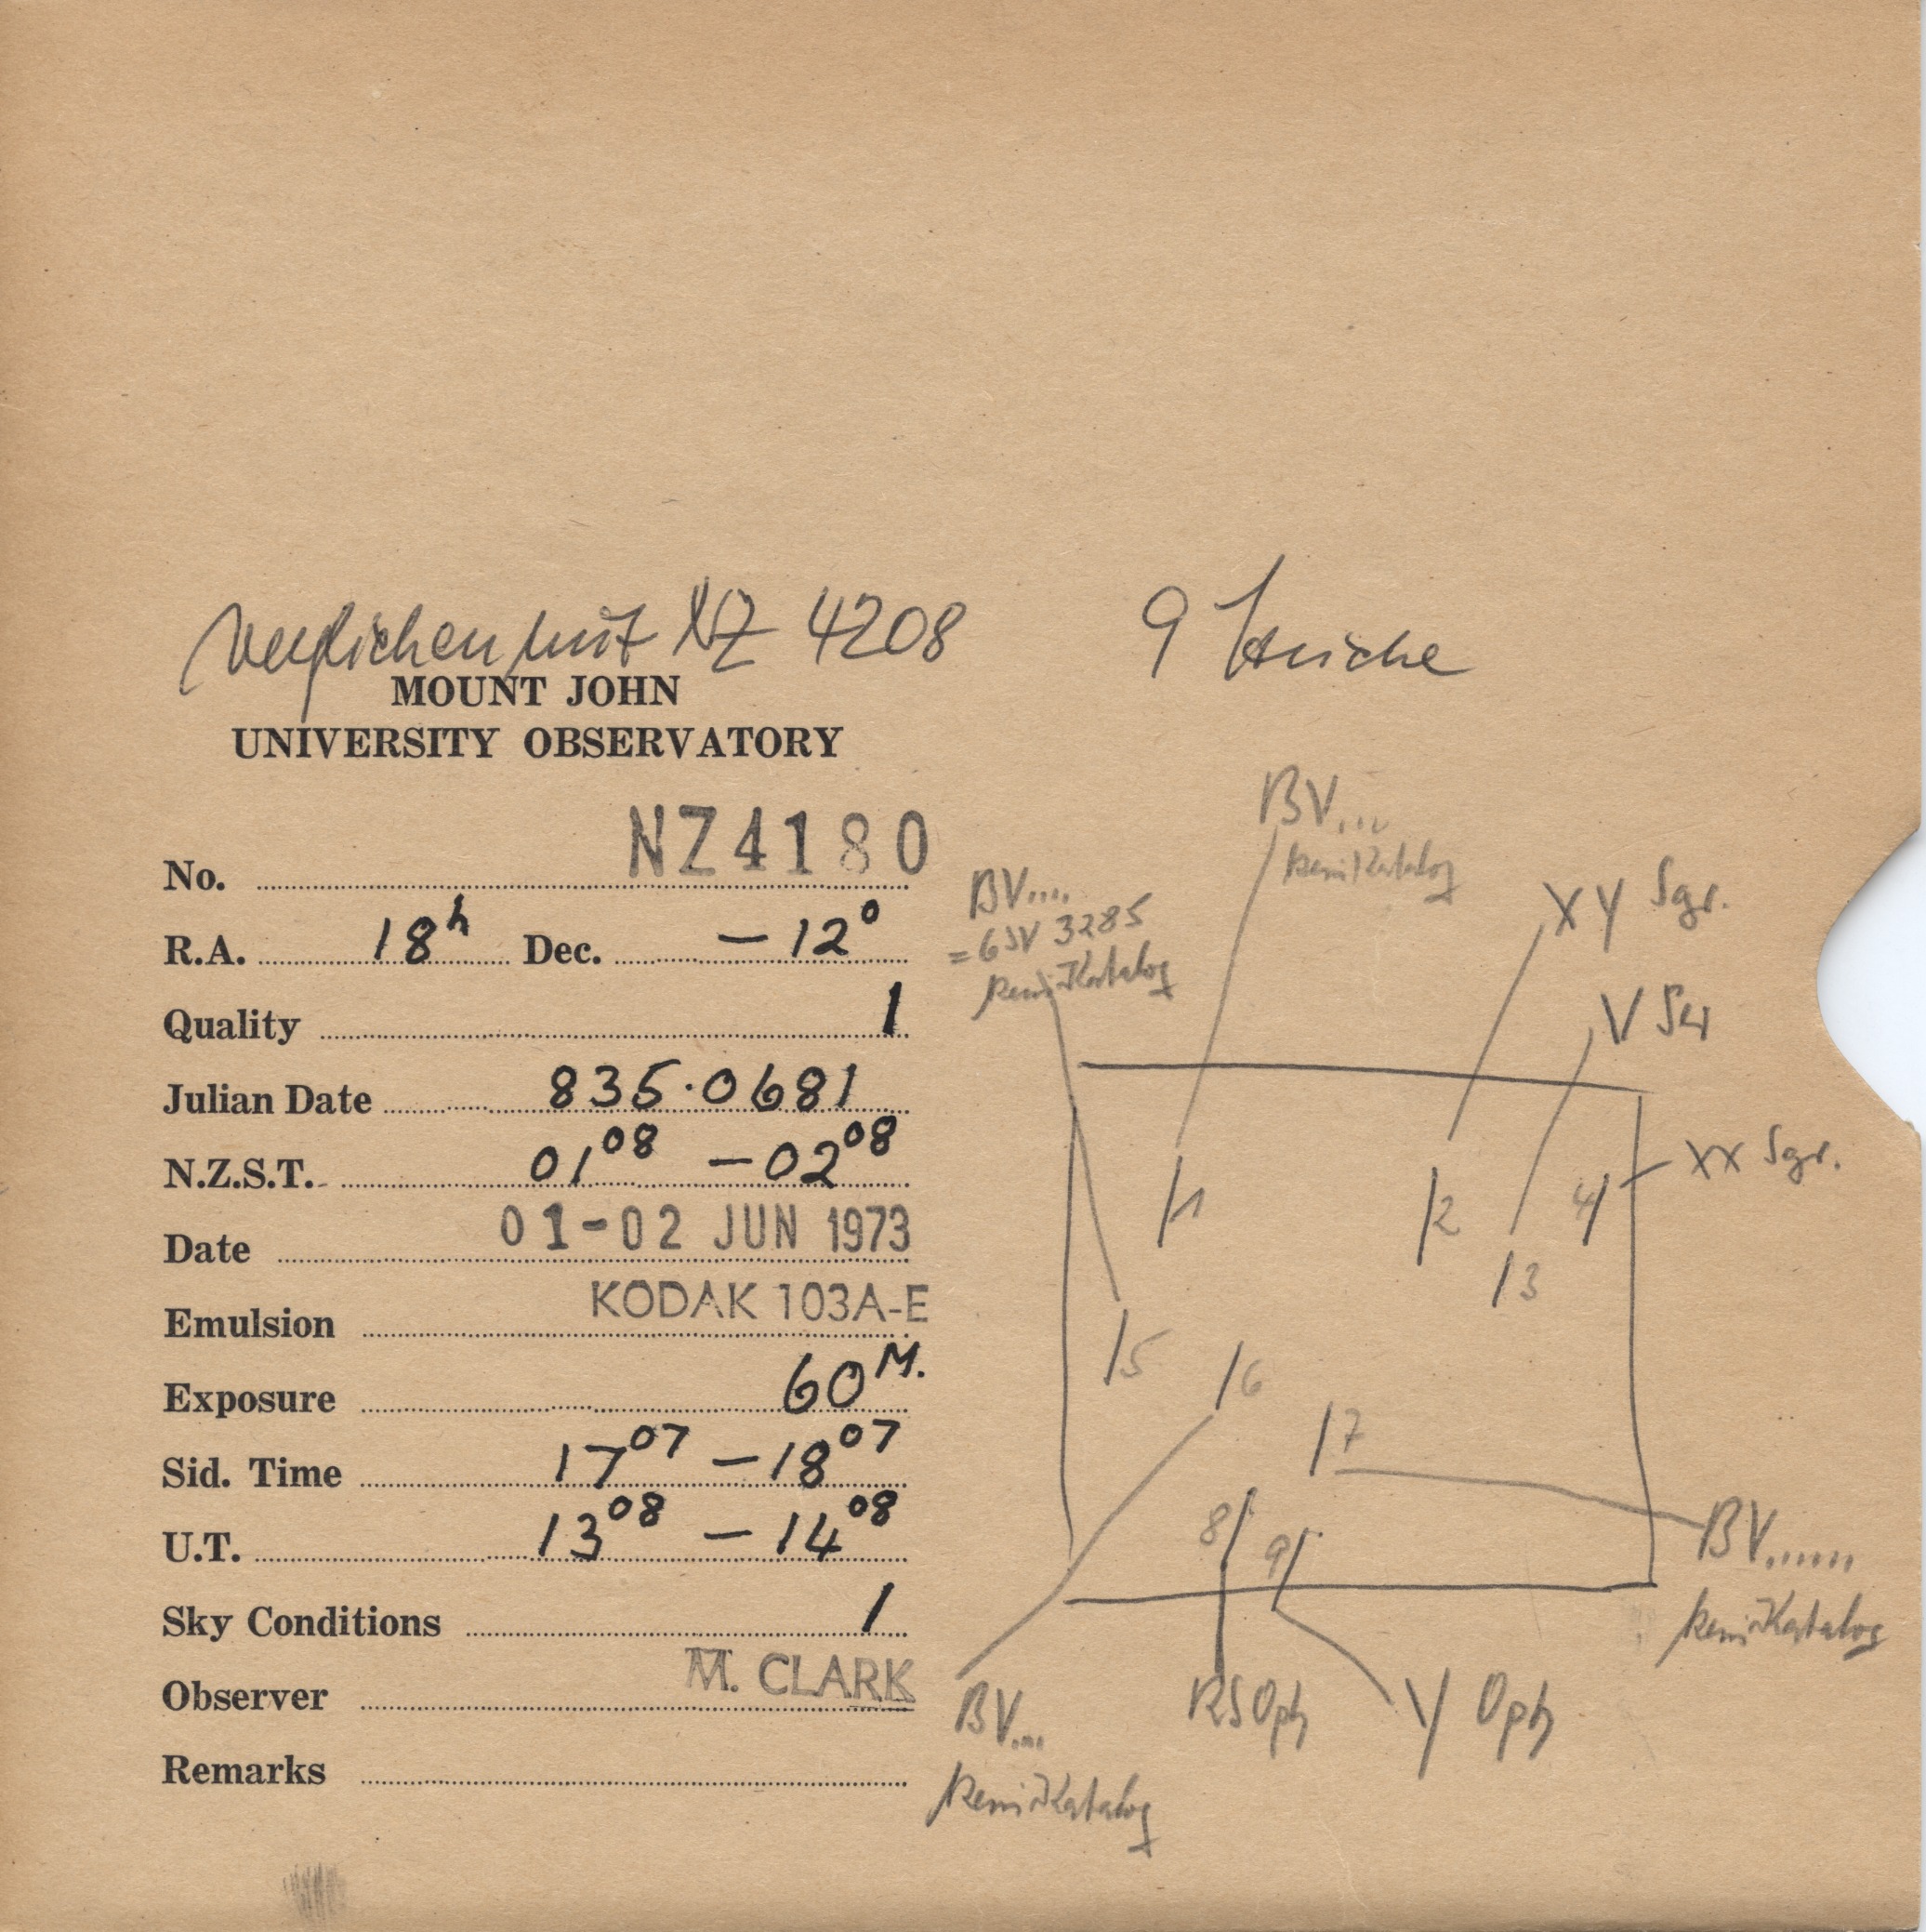 verglichen mit NZ 4208
9 Striche
MOUNT JOHN
UNIVERSITY OBSERVATORY
No. NZ4180
R.A. 18h Dec. -12°
Quality 1
Julian Date 835.0681
N.Z.S.T. 01 08 - 02 08
Date 01-02 JUN 1973
Emulsion KODAK 103A-E
Exposure 60 M.
Sid. Time 17 07 - 18 07
U.T. 13 08 - 14 08
Sky Conditions 1
Observer M. CLARK
Remarks
BV...
kein Katalog
BV....
= GSV 3285
kein Katalog
XY Sgr.
V Ser
XX Sgr.
1
2
3
4
5
6
7
8
9
BV......
kein Katalog
RS Oph
Y Oph
BV...
kein Katalog